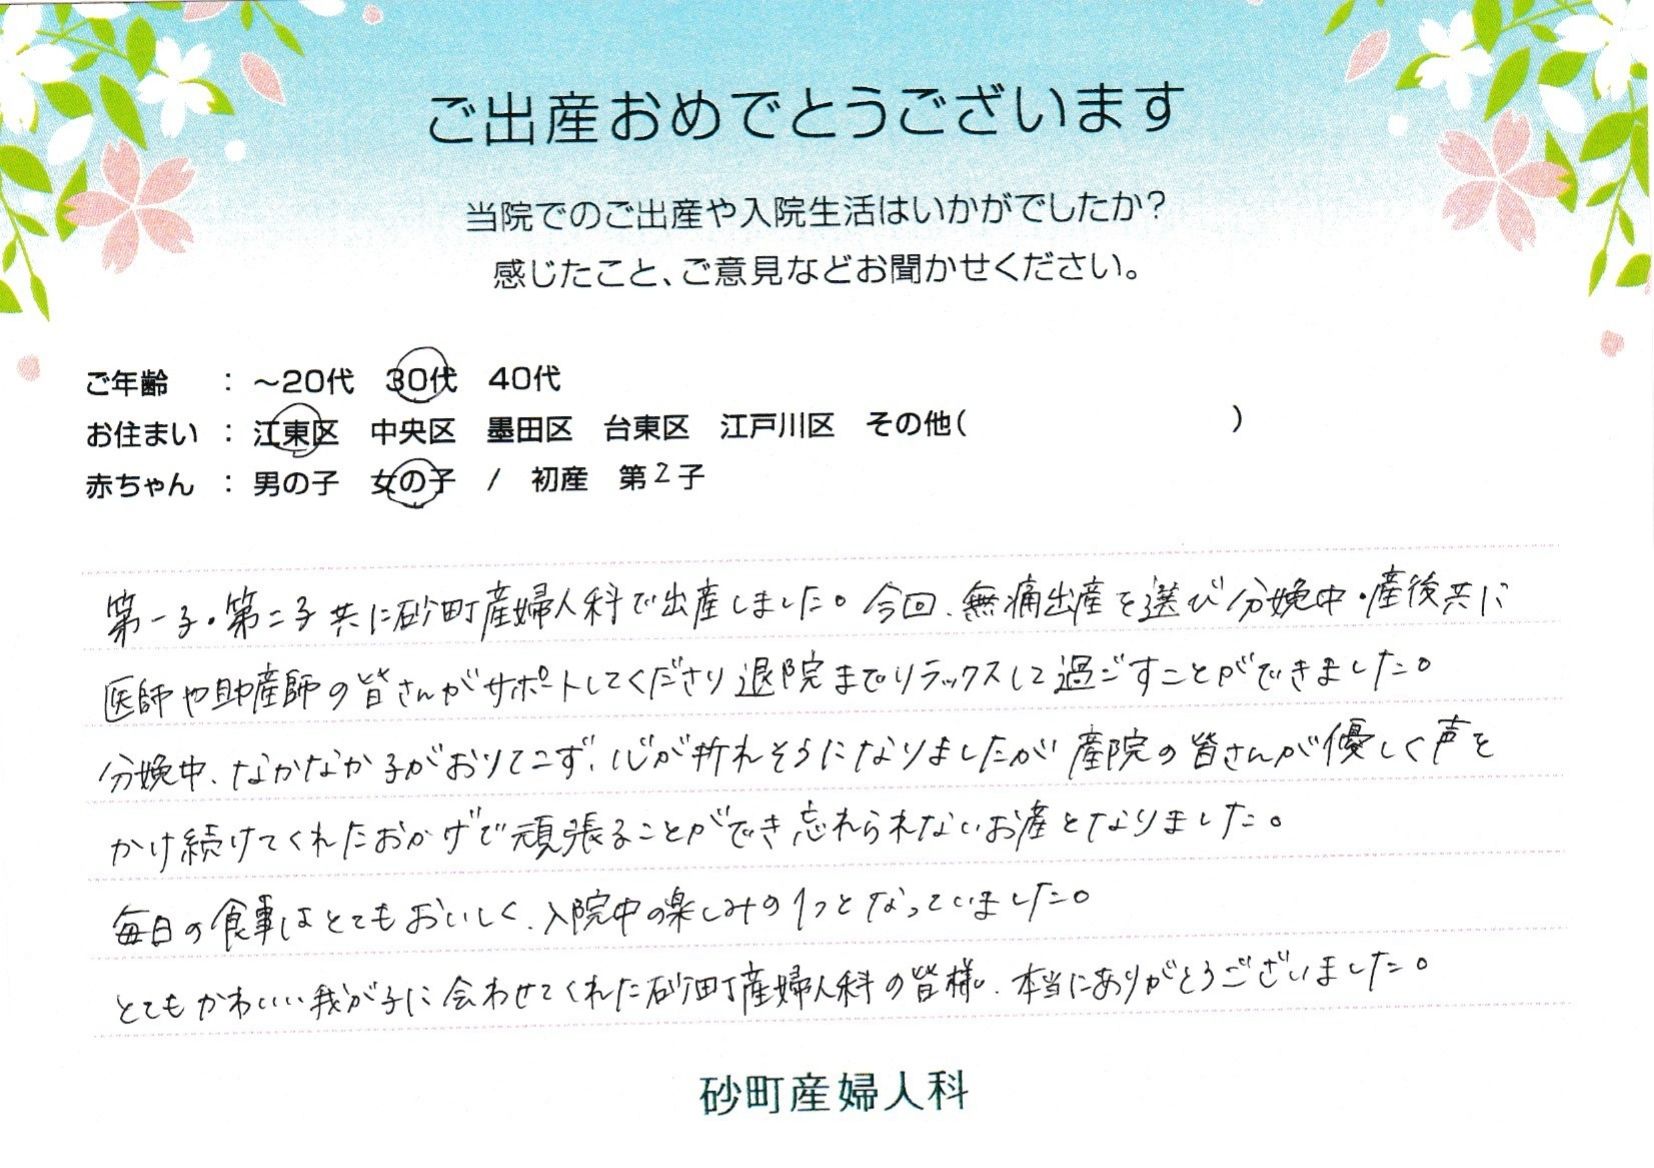 ご出産おめでとうございます
当院でのご出産や入院生活はいかがでしたか？
感じたこと、ご意見などお聞かせください。
ご年齢 ： ～20代 30代 40代
お住まい ： 江東区 中央区 墨田区 台東区 江戸川区 その他（ ）
赤ちゃん ： 男の子 女の子 / 初産 第2子
第一子・第二子共に砂町産婦人科で出産しました。今回、無痛出産を選び分娩中・産後共に
医師や助産師の皆さんがサポートしてくださり退院までリラックスして過ごすことができました。
分娩中、なかなか子がおりてこず、心が折れそうになりましたが産院の皆さんが優しく声を
かけ続けてくれたおかげで頑張ることができ忘れられないお産となりました。
毎日の食事はとてもおいしく、入院中の楽しみの1つとなっていました。
とてもかわいい我が子に会わせてくれた砂町産婦人科の皆様、本当にありがとうございました。
砂町産婦人科